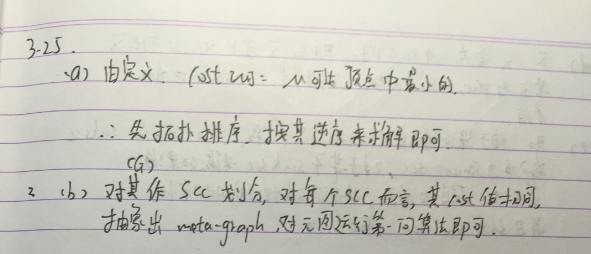 3-25.
(a) 由定义. cost[u] = u可达顶点中最小的.
∴ 先拓扑排序. 按其逆序来求解即可.
(G)
(b) 对其作 SCC 划分, 对每个SCC而言, 其cost值相同,
抽象出 meta-graph, 对元图运行第一问算法即可.